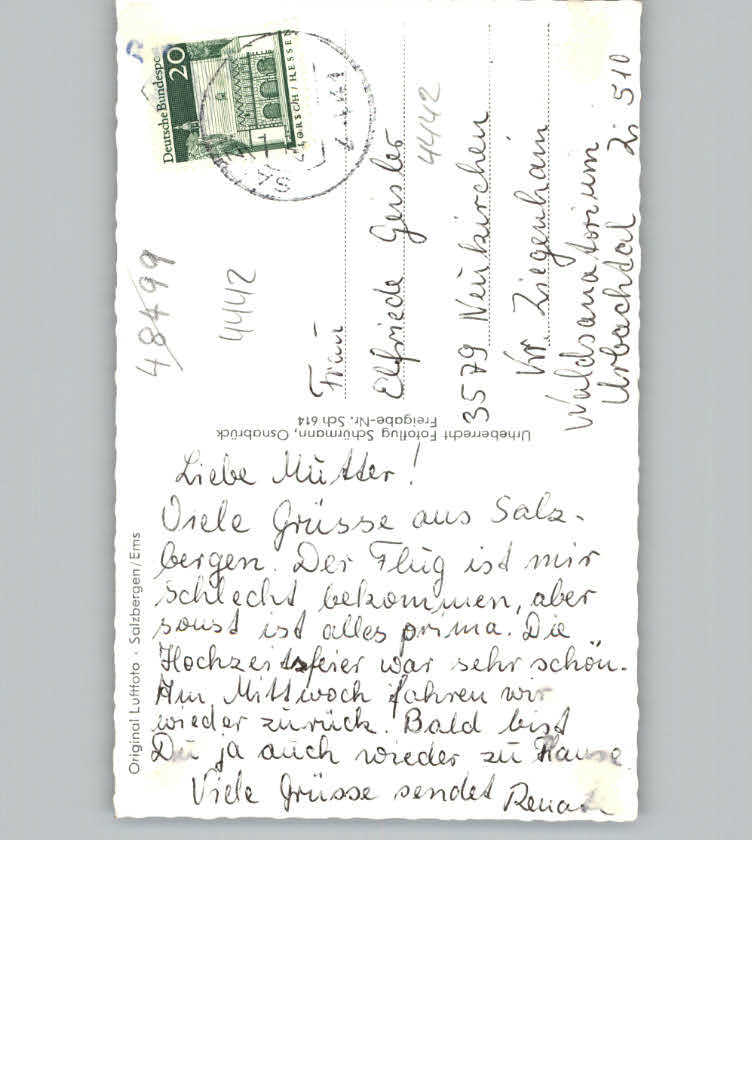 Liebe Mutter!
Viele Grüsse aus Salz-
bergen. Der Flug ist mir
schlecht bekommen, aber
sonst ist alles prima. Die
Hochzeitsfeier war sehr schön.
Am Mittwoch fahren wir
wieder zurück. Bald bist
Du ja auch wieder zu Hause
Viele Grüsse sendet Renate
Original Luftfoto · Salzbergen/Ems
Urheberrecht Fotoflug Schürmann, Osnabrück
Freigabe-Nr. Sch 614
48499
4442
Deutsche Bundespo
20
LORSCH/HESSEN
Frau
Elfriede Geisler
4442
3579 Neukirchen
Kr. Ziegenhain
Waldsanatorium
Urbachtal Zi 510